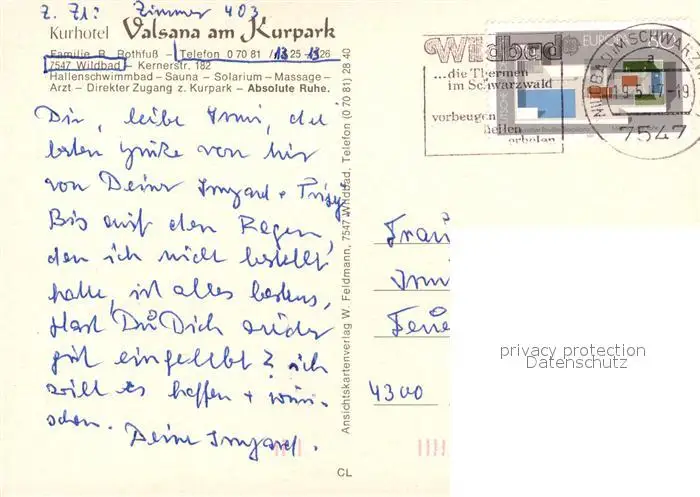 z. Zt. Zimmer 403
Kurhotel Valsana am Kurpark
Familie R. Rothfuß – Telefon 0 70 81 /
7547 Wildbad – Kernerstr. 182
Hallenschwimmbad – Sauna – Solarium – Massage –
Arzt – Direkter Zugang z. Kurpark – Absolute Ruhe.
Dir, liebe Irmi, die
besten Grüße von hier
von Deiner Irmgard +
Bis auf den Regen,
den ich nicht bestellt
hatte, ist alles bestens,
Hast Du Dich wieder
gut eingelebt? ich
will es hoffen + wün-
schen.
Deine Irmgard.
Ansichtskartenverlag W. Feldmann, 7547 Wildbad, Telefon (0 70 81) 28 40
CL
Wildbad
...die Thermen
im Schwarzwald
vorbeugen
heilen
erholen
EUROPA
WILDBAD IM SCHWARZW
7547
Frau
Irm
4300
privacy protection
Datenschutz